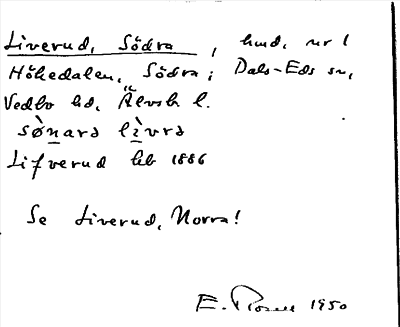 Liverud, Södra, hmd. nr 1
Höhedalen, Södra; Dals-Eds sn,
Vedbo hd, Älvsb l.
sø̀nara lìvrə
Lifverud hb 1886
Se Liverud, Norra!
E. Rosell 1950